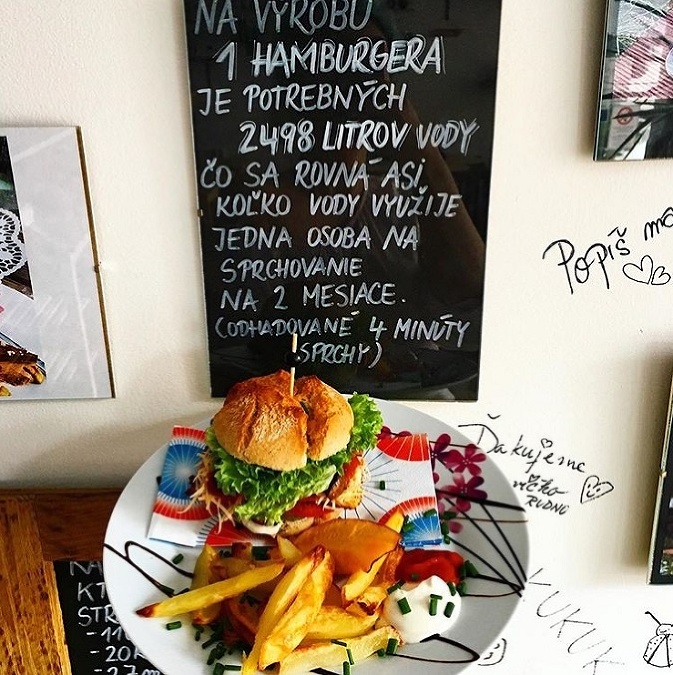 NA VÝROBU
1 HAMBURGERA
JE POTREBNÝCH
2498 LITROV VODY
ČO SA ROVNÁ ASI
KOĽKO VODY VYUŽIJE
JEDNA OSOBA NA
SPRCHOVANIE
NA 2 MESIACE.
(ODHADOVANÉ 4 MINÚTY
SPRCHY)
Popíš
Ďakujeme
RUDNO
KUKUK
NA
KT
STR